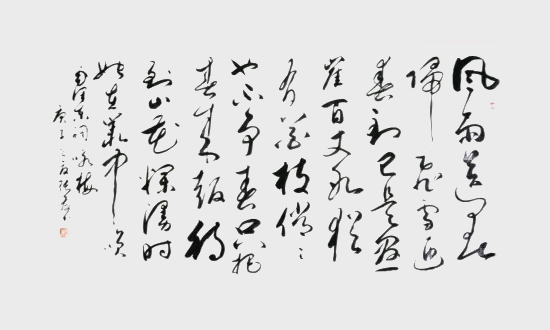 風雨送春
歸飛雪迎
春到已是懸
崖百丈冰猶
有花枝俏〻
也不爭春只把
春來報待
到山花爛漫時
她在叢中笑
毛澤東詞咏梅
庚子